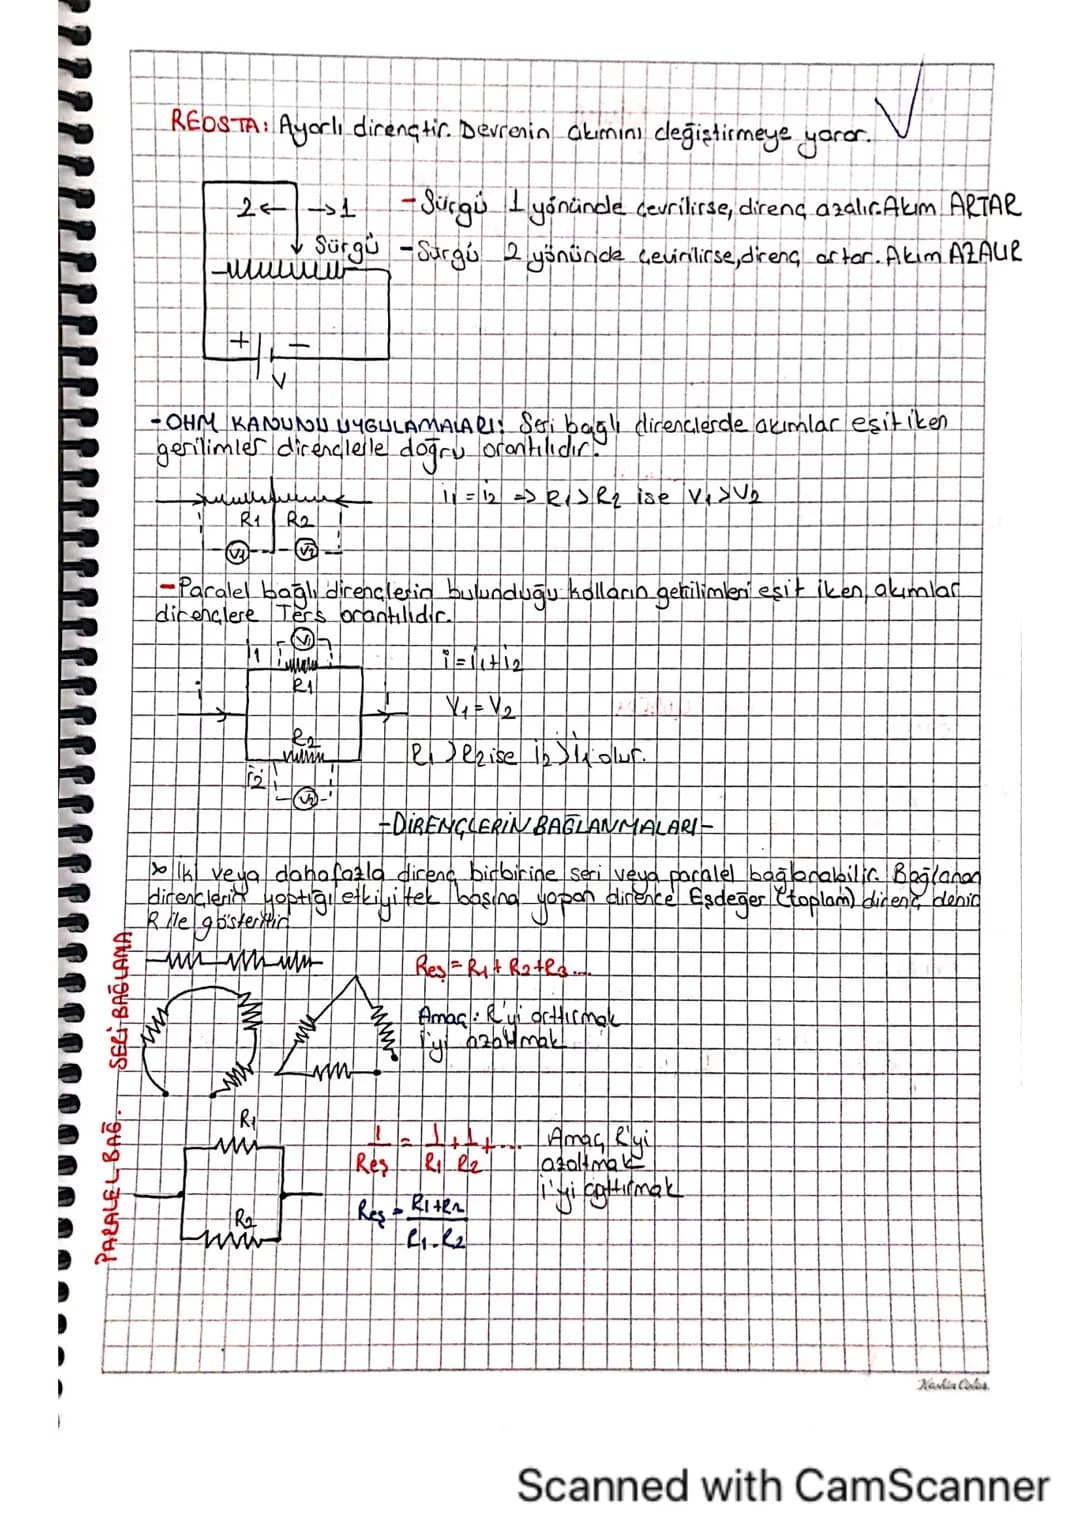 REOSTA: Ayarlı dirençtir. Devrenin akımını değiştirmeye yarar.
2← →1
- Sürgü 1 yönünde çevrilirse, direnç azalır. Akım ARTAR
Sürgü
- Sürgü 2 yönünde çevirilirse, direnç artar. Akım AZALIR
+ -
V
- OHM KANUNU UYGULAMALARI: Seri bağlı dirençlerde akımlar eşit iken
gerilimler dirençlerle doğru orantılıdır.
i1 = i2 => R1 > R2 ise V1 > V2
R1 R2
V1 V2
- Paralel bağlı dirençlerin bulunduğu kolların gerilimleri eşit iken, akımlar
dirençlere Ters orantılıdır.
V1
i1
i = i1 + i2
R1
i
V1 = V2
R2
R1 > R2 ise i2 > i1 olur.
i2
V2
- DİRENÇLERİN BAĞLANMALARI -
* İki veya daha fazla direnç birbirine seri veya paralel bağlanabilir. Bağlanan
dirençlerin yaptığı etkiyi tek başına yapan dirence Eşdeğer (toplam) direnç denir
R ile gösterilir.
SERİ BAĞLAMA
Reş = R1 + R2 + R3 ....
Amaç: R'yi arttırmak
i'yi azaltmak
PARALEL BAĞ.
R1
R2
1/Reş = 1/R1 + 1/R2 + ...
Reş = R1+R2/R1.R2
Amaç R'yi
azaltmak
i'yi arttırmak
Scanned with CamScanner